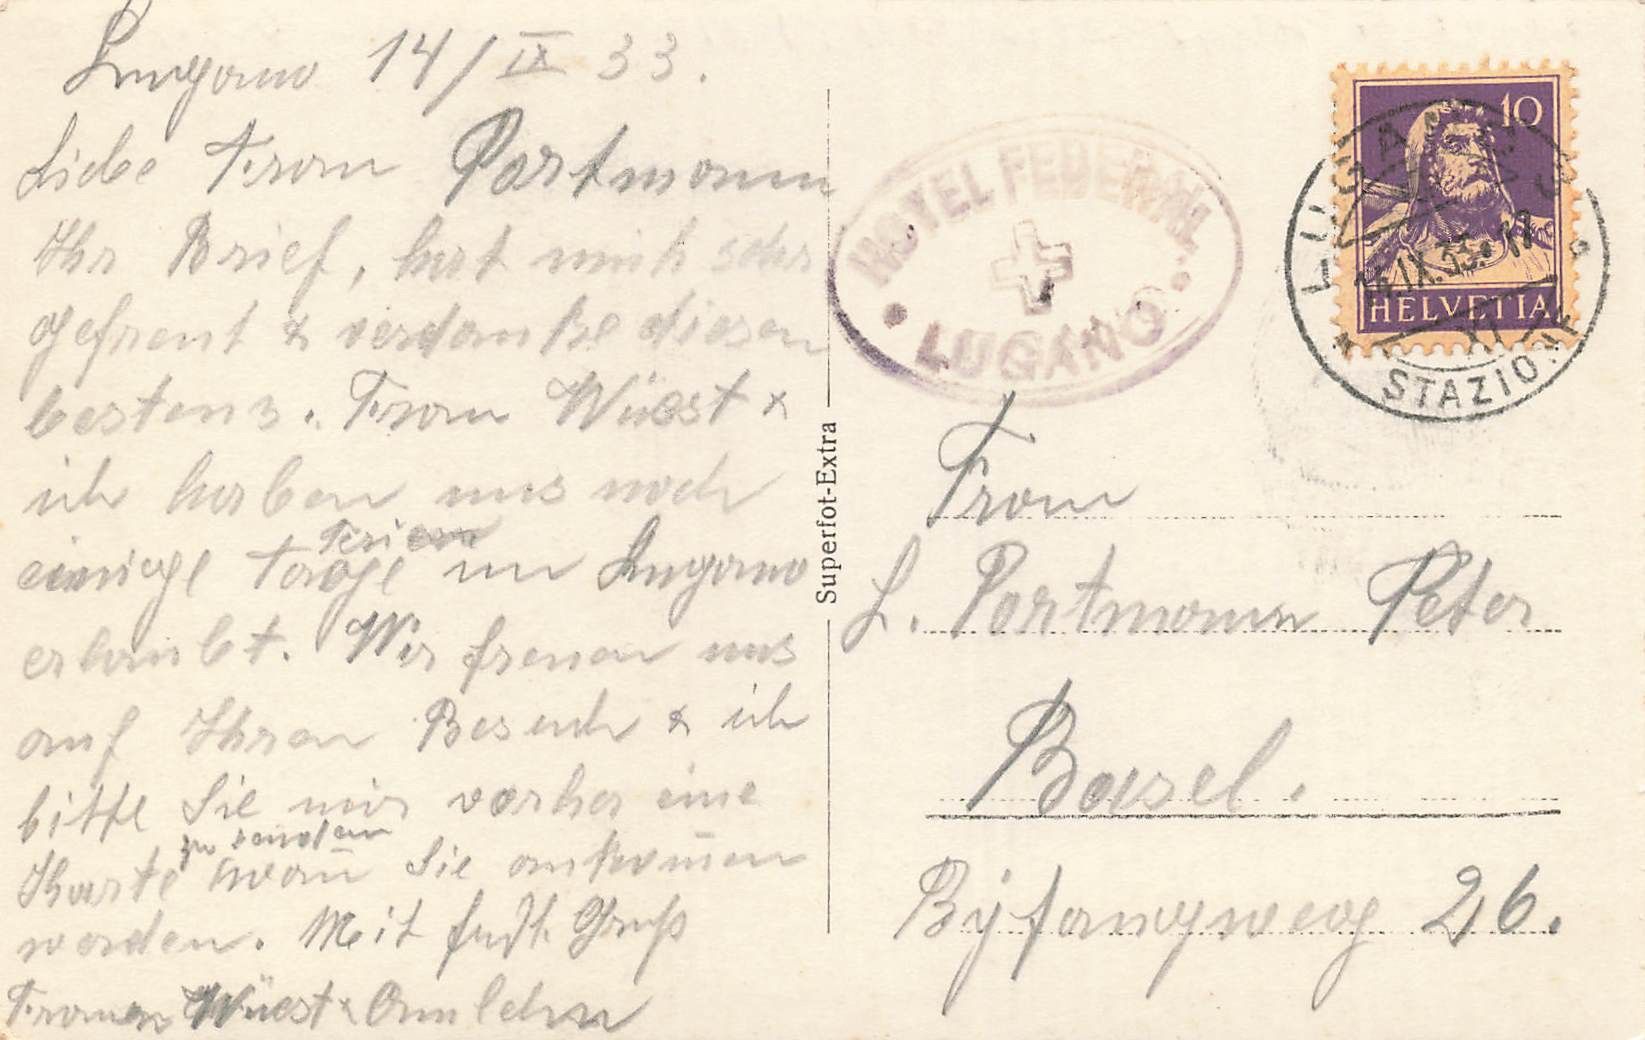 Lugano 14/IX 33.
Liebe Frau Portmann
Ihr Brief, hat mich sehr
gefreut & verdanke diesen
bestens. Frau Wüest &
ich haben uns noch
einige Ferien
Tage in Lugano
erlaubt. Wir freuen uns
auf Ihren Besuch & ich
bitte Sie mir vorher eine
Karte zu senden wan̄ Sie ankom̄en
werden. Mit frdl. Gruß
Frauen Wüest &
HOTEL FEDERAL
LUGANO
10
HELVETIA
LUGANO
14.IX.33.17
STAZIONE
Superfot-Extra
Frau
L. Portmann Peter
Basel.
Byfangweg 26.